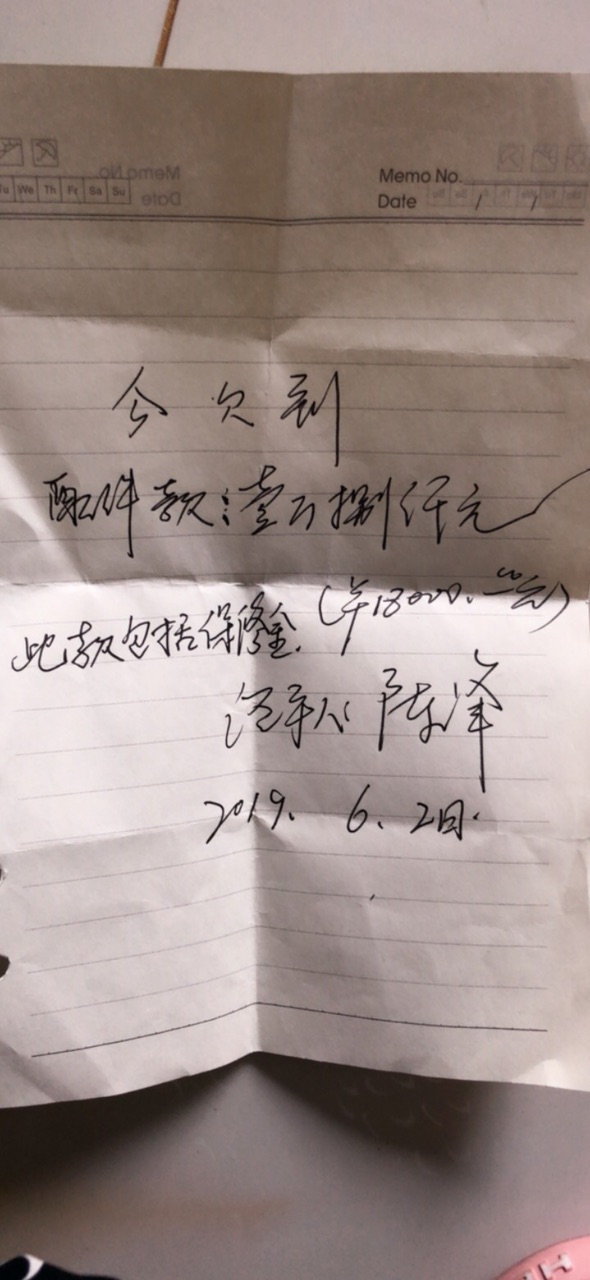 Memo No.
Date / /
Tu We Th Fr Sa Su
Memo No
Date
今欠到
配件款:壹万捌仟元
(¥18000.00元)
此款包括保修金.
经手人: 陈泽
2019. 6. 2日.